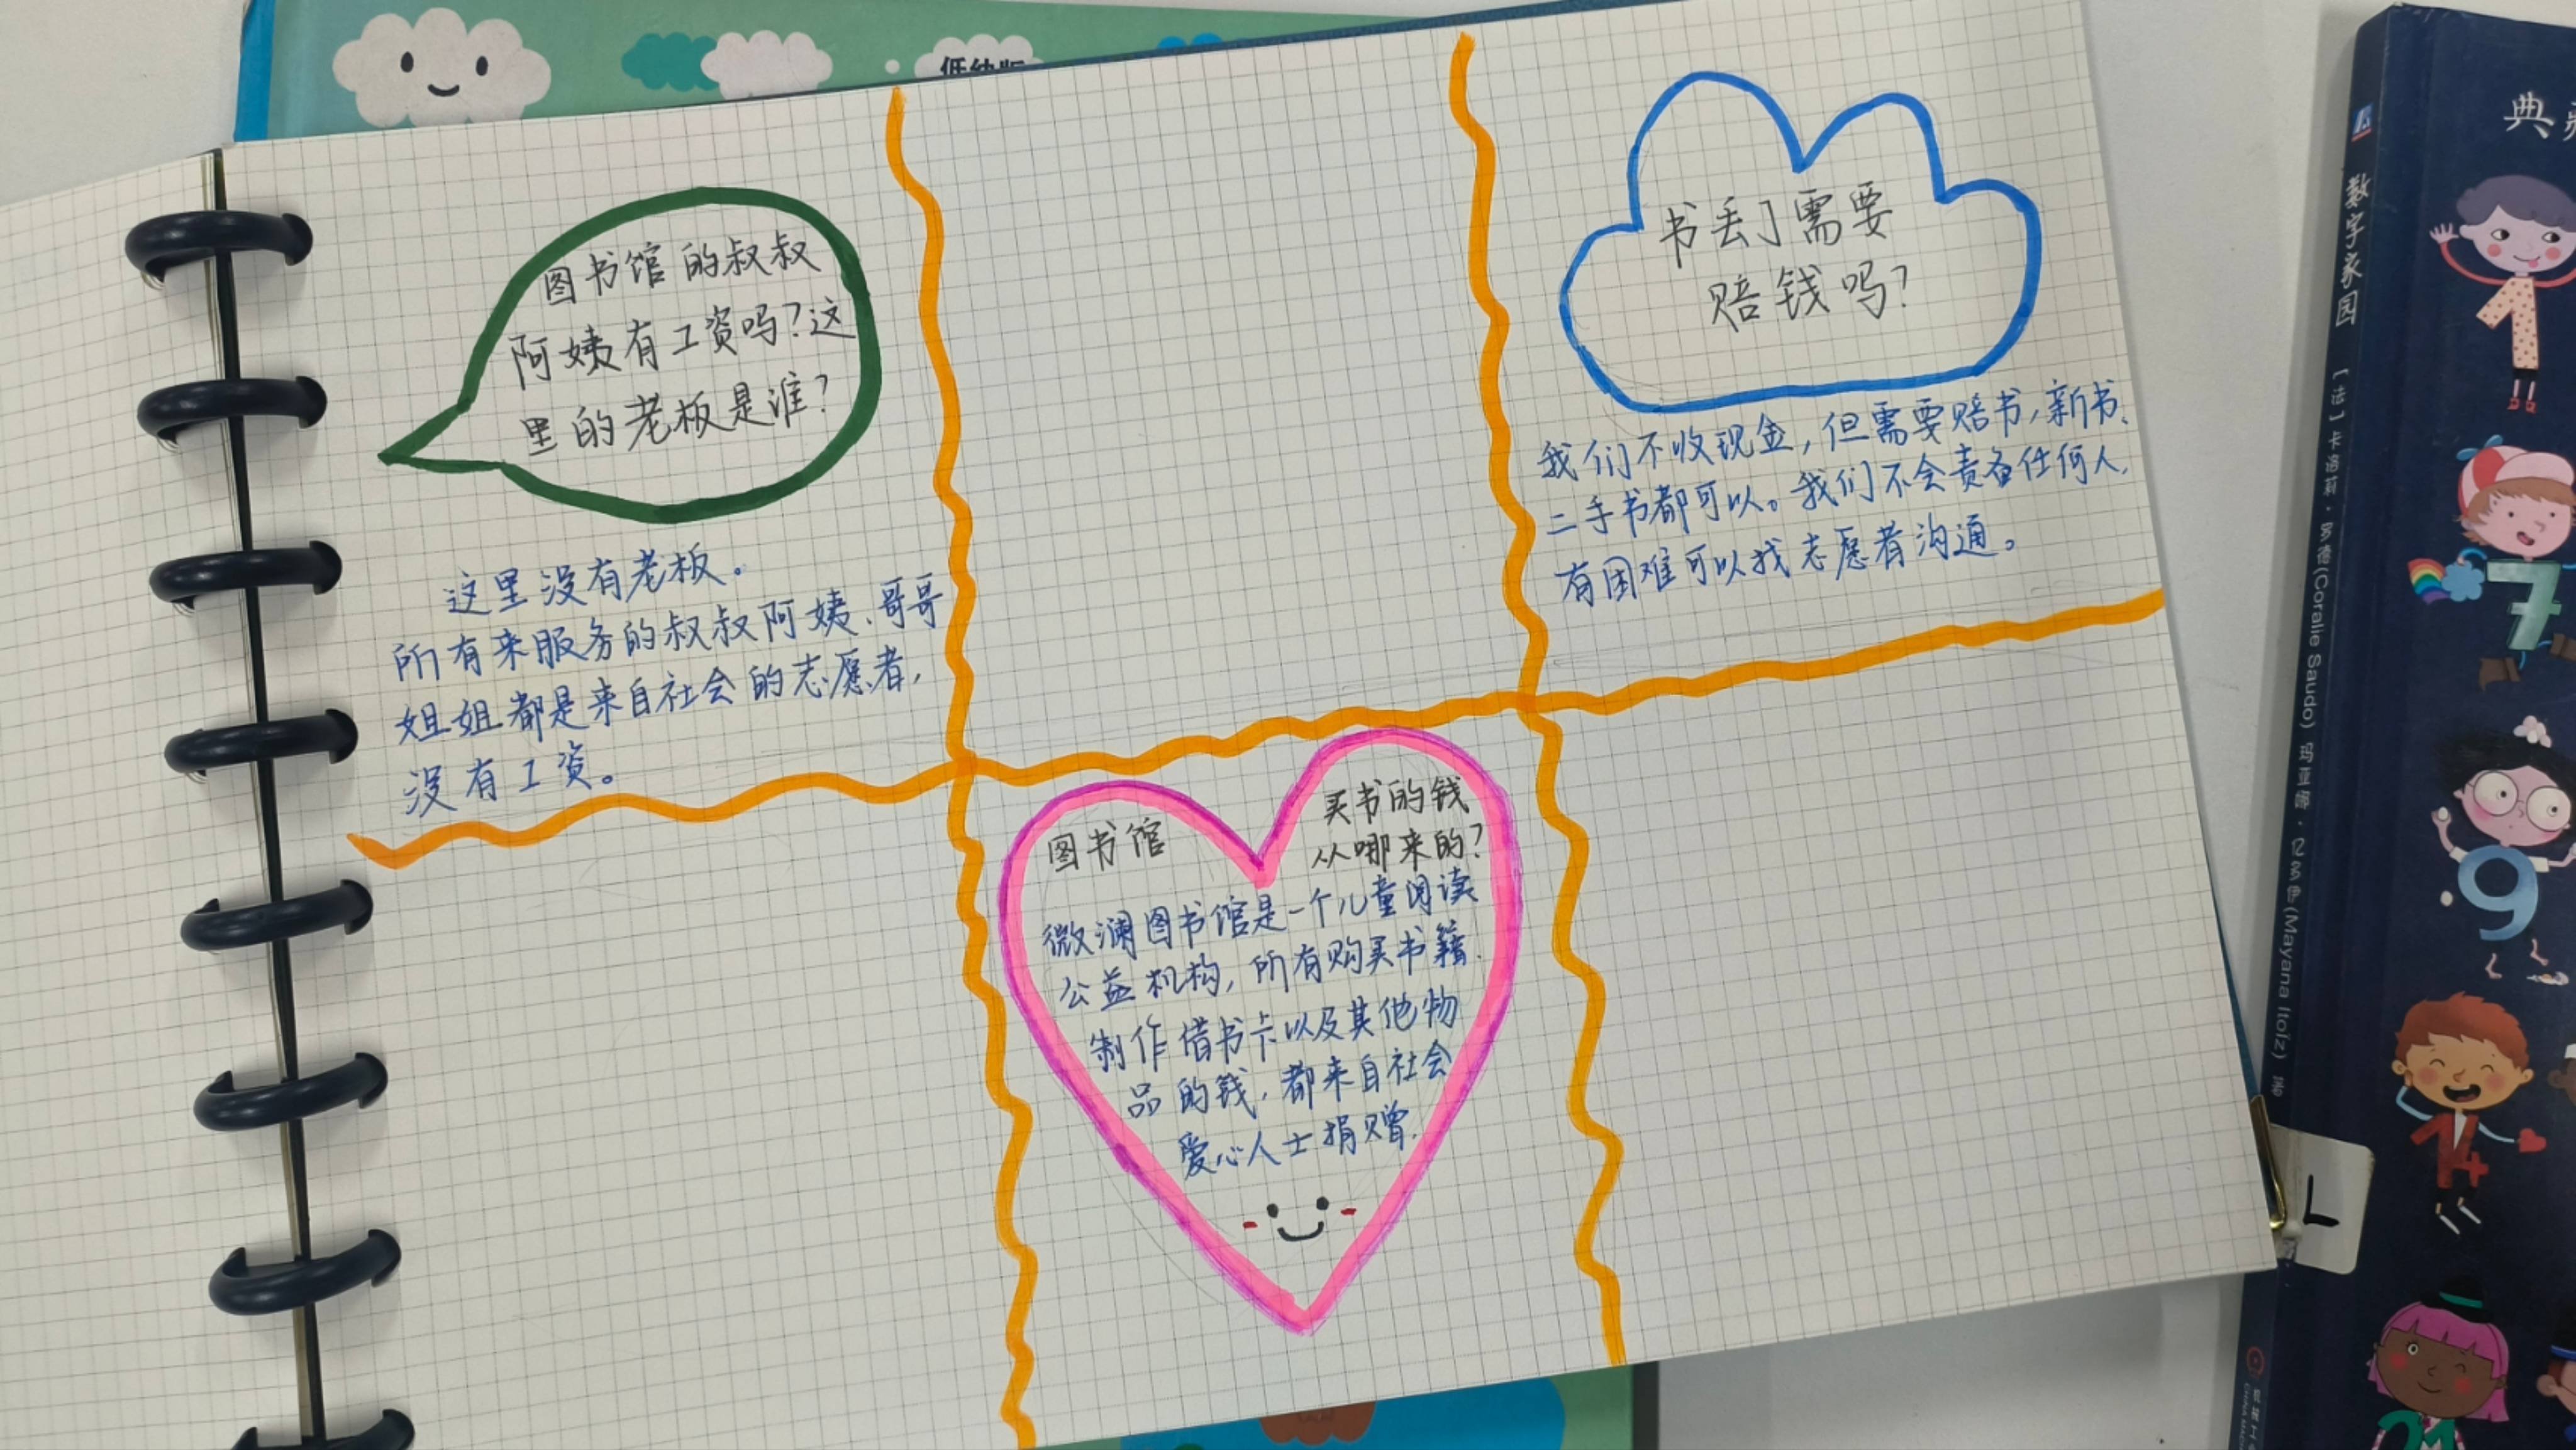 低幼版
图书馆的叔叔
阿姨有工资吗?这
里的老板是谁?
这里没有老板。
所有来服务的叔叔阿姨、哥哥
姐姐都是来自社会的志愿者,
没有工资。
书丢了需要
赔钱吗?
我们不收现金,但需要赔书,新书、
二手书都可以。我们不会责备任何人,
有困难可以找志愿者沟通。
图书馆
买书的钱
从哪来的?
微澜图书馆是一个儿童阅读
公益机构,所有购买书籍、
制作借书卡以及其他物
品的钱,都来自社会
爱心人士捐赠.
典
数字家园
[法]卡洛莉·多德(Coralie Saudo) 玛亚娜·亿多伊(Mayana Itoïz) 著
1
7
9
14
21
L